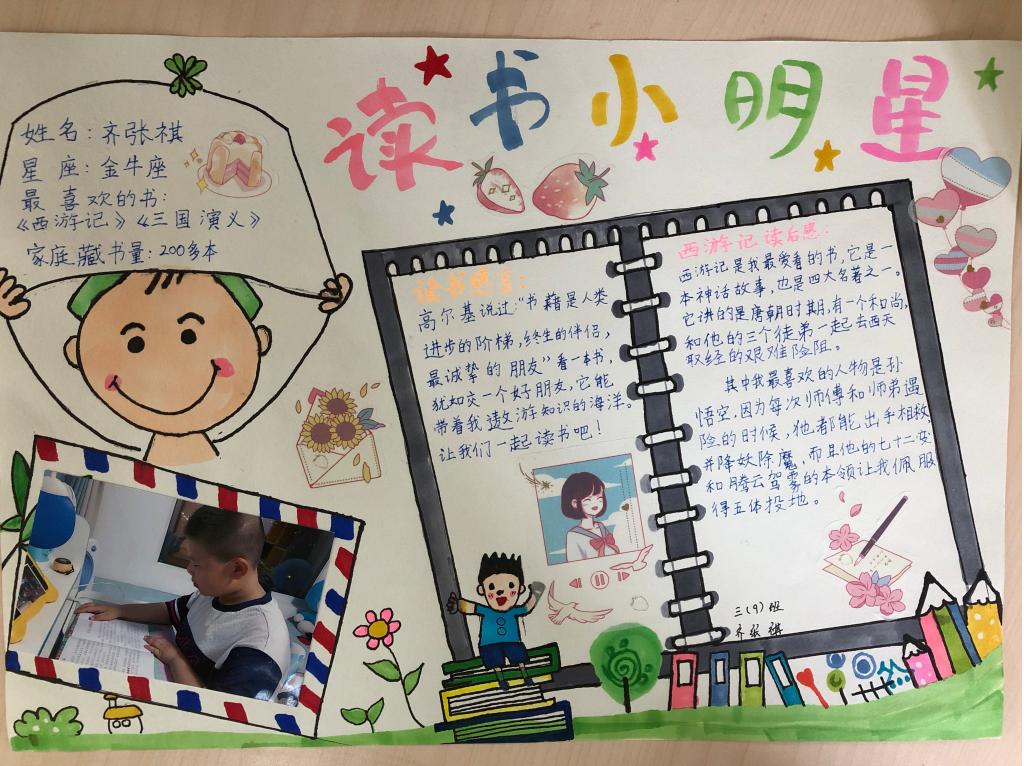 读书小明星
姓名：齐张祺
星座：金牛座
最喜欢的书：
《西游记》《三国演义》
家庭藏书量：200多本
读书感言：
高尔基说过："书籍是人类
进步的阶梯，终生的伴侣，
最诚挚的朋友"看一本书，
犹如交一个好朋友，它能
带着我遨游知识的海洋。
让我们一起读书吧！
西游记读后感：
西游记是我最爱看的书，它是一
本神话故事，也是四大名著之一。
它讲的是唐朝时期，有一个和尚，
和他的三个徒弟一起去西天
取经的艰难险阻。
其中我最喜欢的人物是孙
悟空，因为每次师傅和师弟遇
险的时候，他都能出手相救，
并降妖除魔，而且他的七十二变
和腾云驾雾的本领让我佩服
得五体投地。
三(9)班
齐张祺